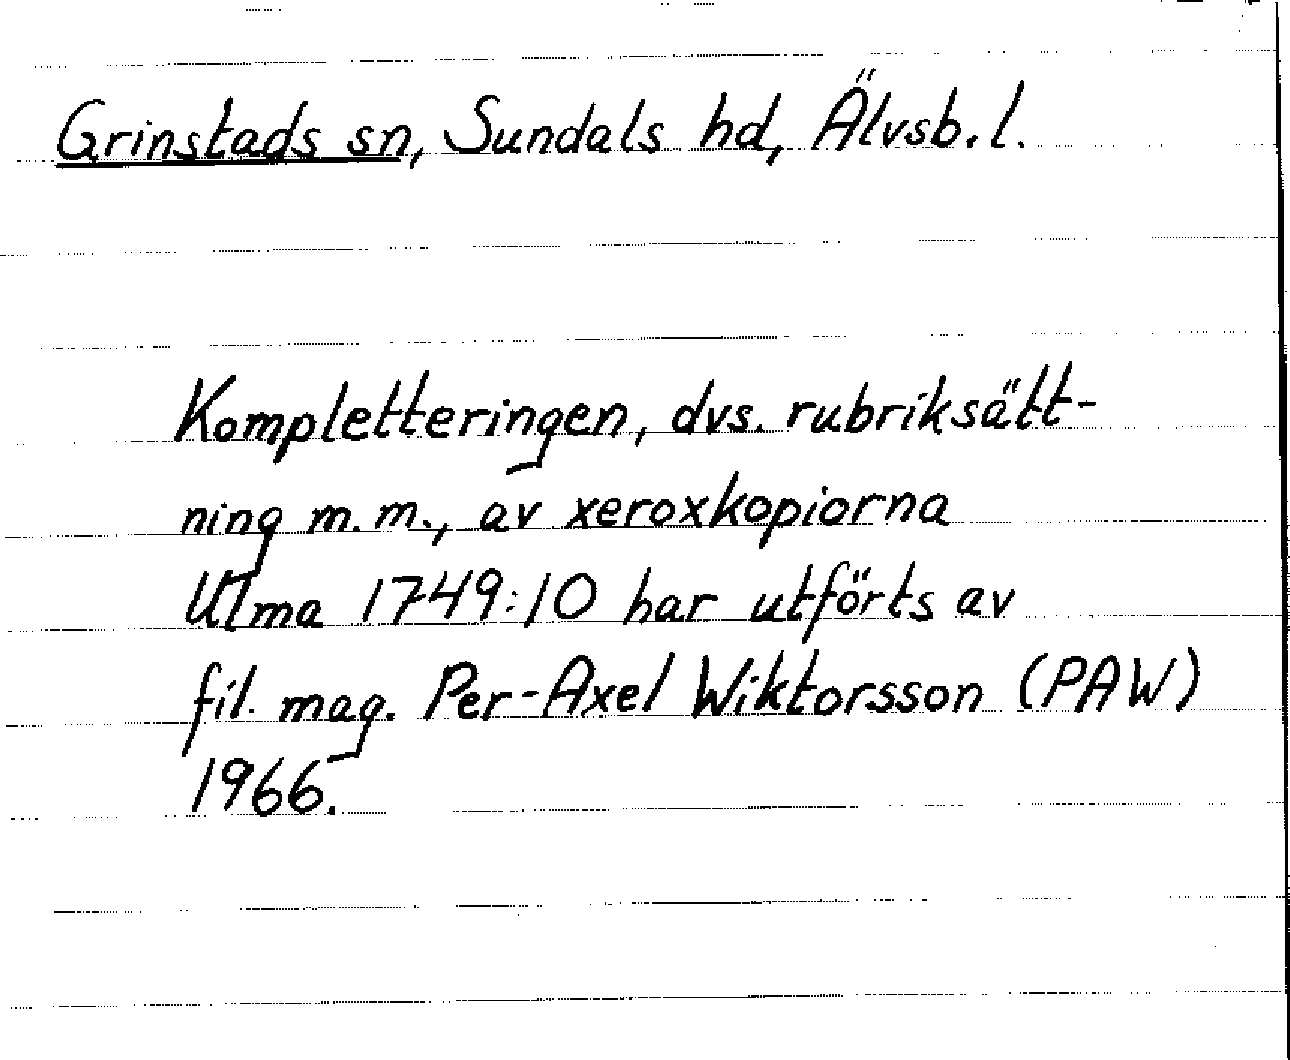 Grinstads sn, Sundals hd, Älvsb. l.
Kompletteringen, dvs. rubriksätt-
ning m.m., av xeroxkopiorna
Ulma 1749:10 har utförts av
fil. mag. Per-Axel Wiktorsson (PAW)
1966.